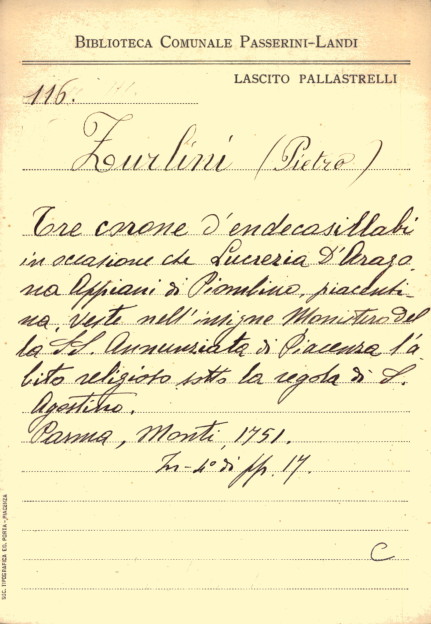 BIBLIOTECA COMUNALE PASSERINI-LANDI
LASCITO PALLASTRELLI
116.
Zurlini (Pietro)
Tre corone d'endecasillabi
in occasione che Lucrezia D'Arago
na Appiani di Piombino, piacenti
na, veste nell'insigne Monistero del
la SS. Annunziata di Piacenza l'a
bito religioso sotto la regola di S.
Agostino.
Parma, Monti, 1751.
In-4° di pp. 17.
C
SOC. TIPOGRAFICA ED. PORTA-PIACENZA